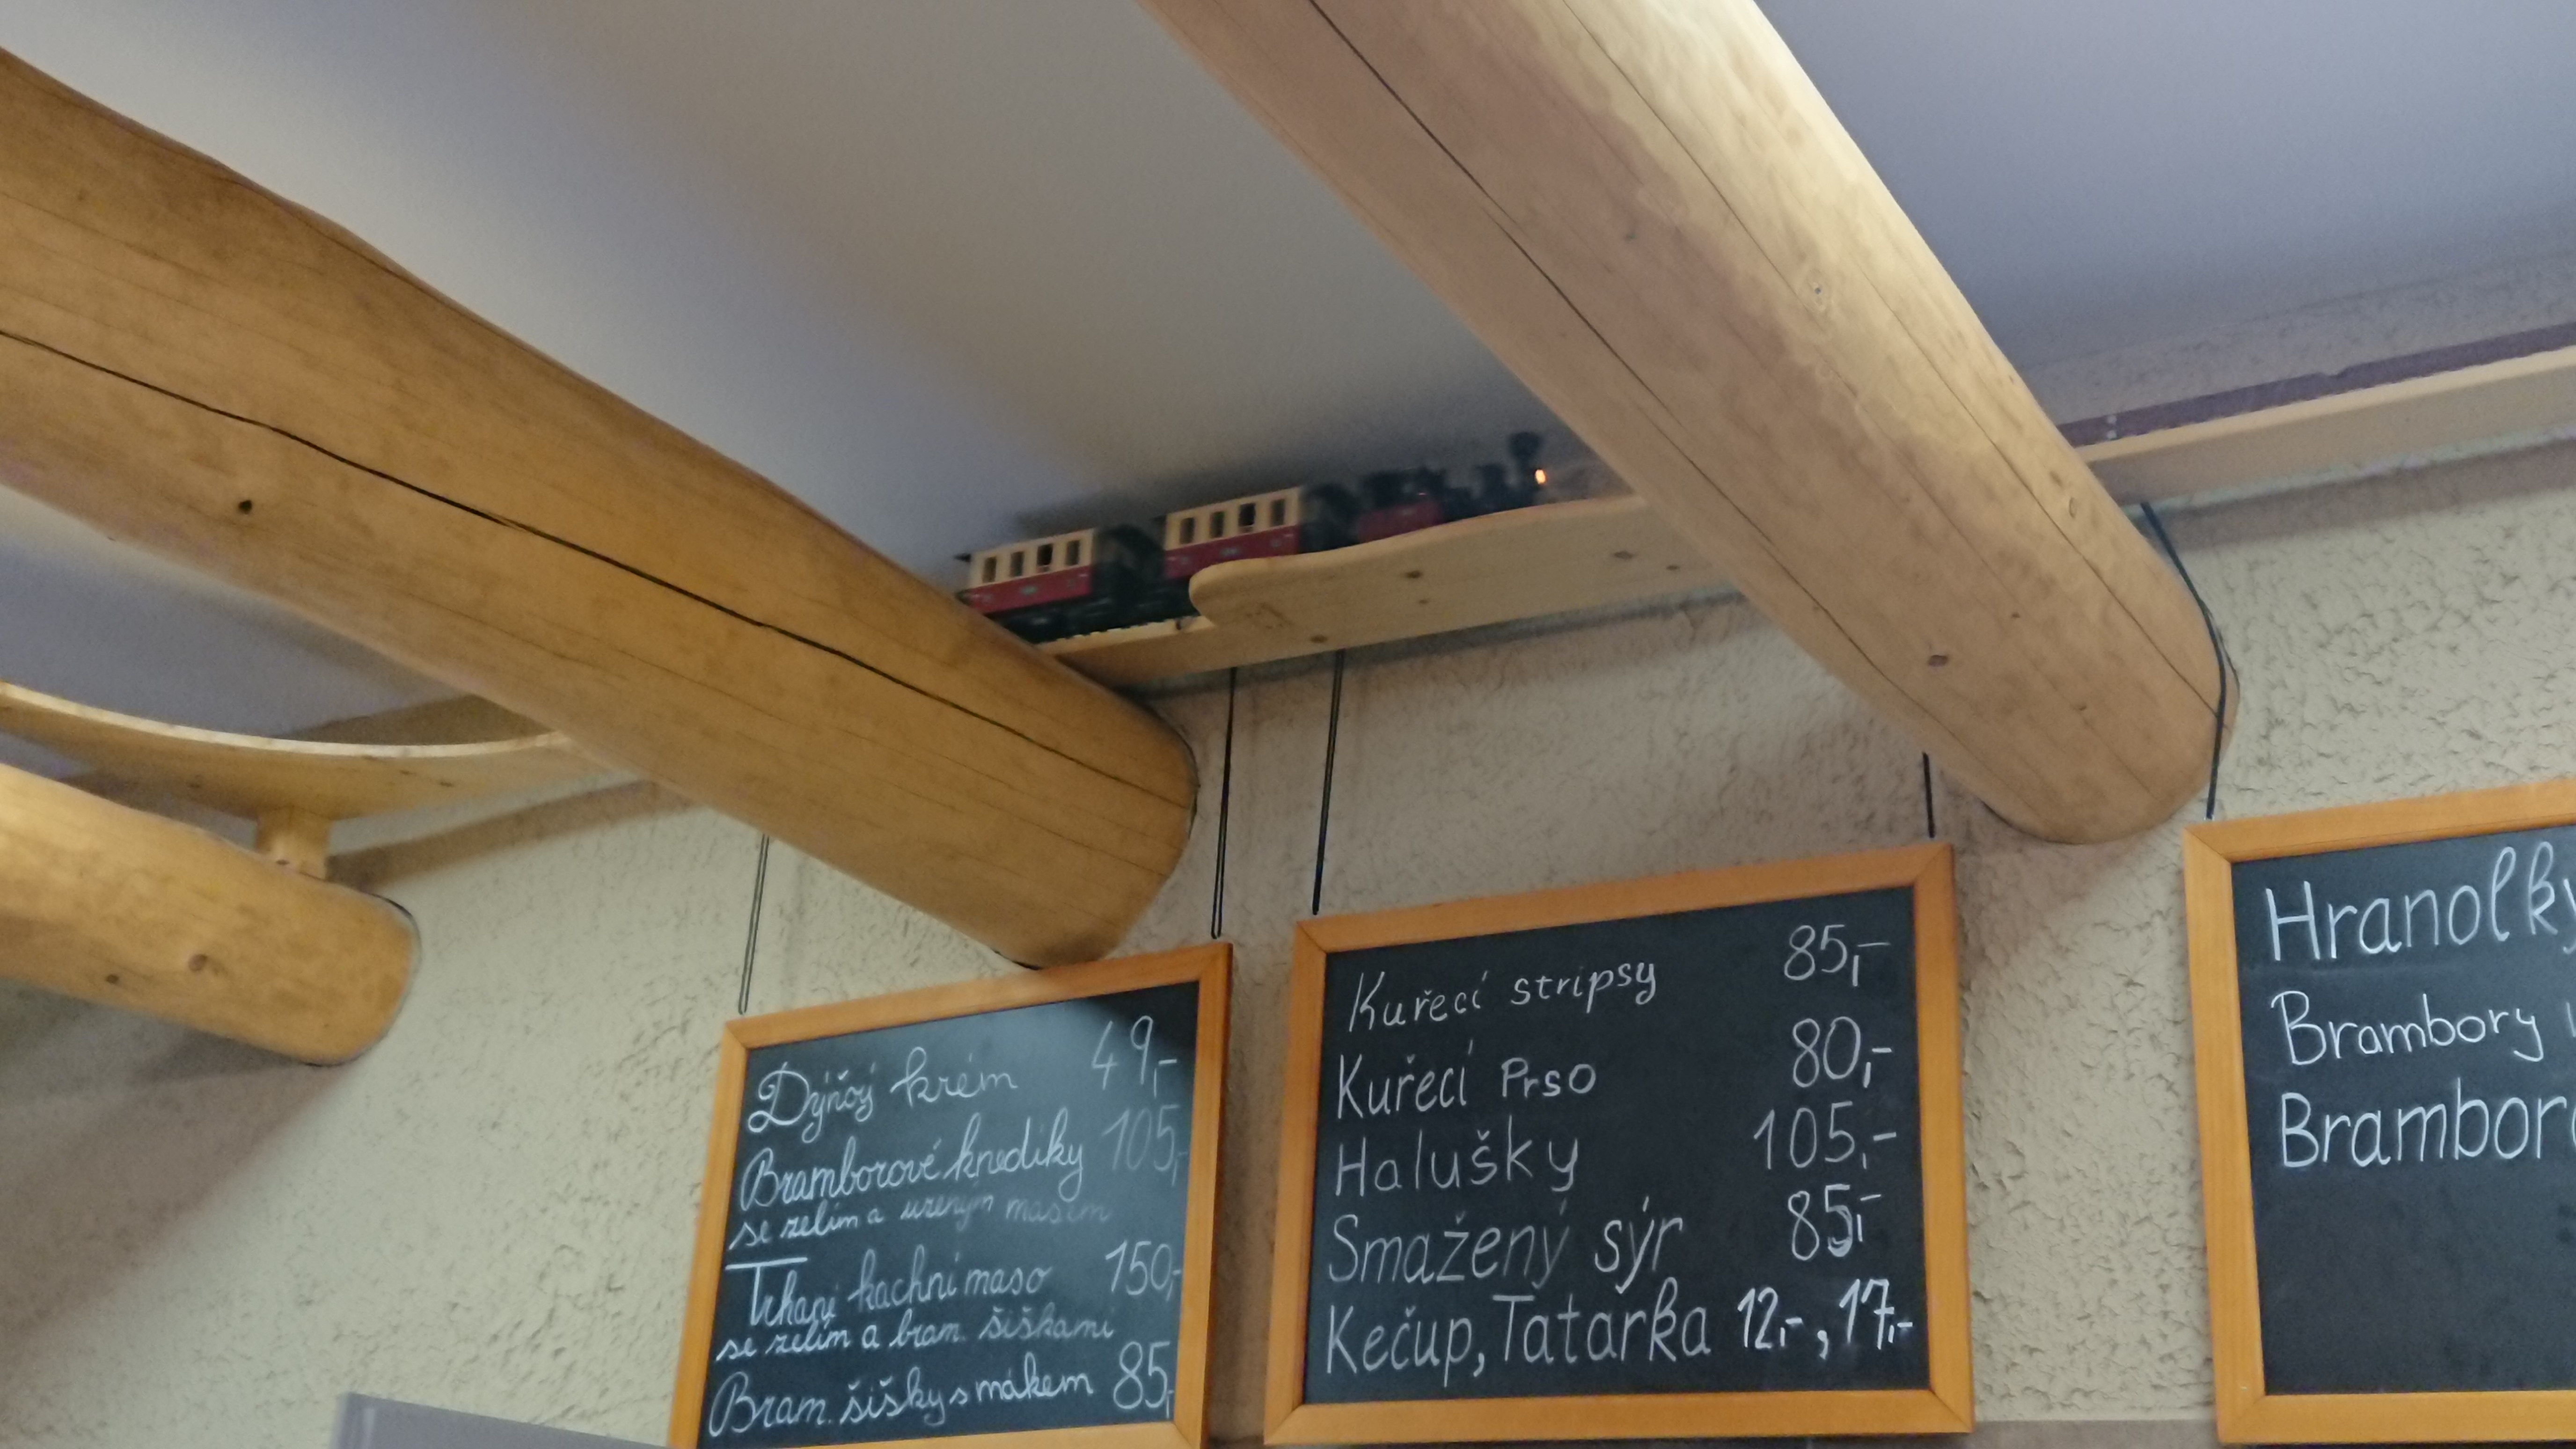 Dýňový krém 49,-
Bramborové knedlíky 105,-
se zelím a uzeným masem
Trhané kachní maso 150,-
se zelím a bram. šiškami
Bram. šišky s mákem 85,-
Kuřecí stripsy 85,-
Kuřecí Prso 80,-
Halušky 105,-
Smažený sýr 85,-
Kečup, Tatarka 12,-, 17,-
Hranolky
Brambory
Brambor